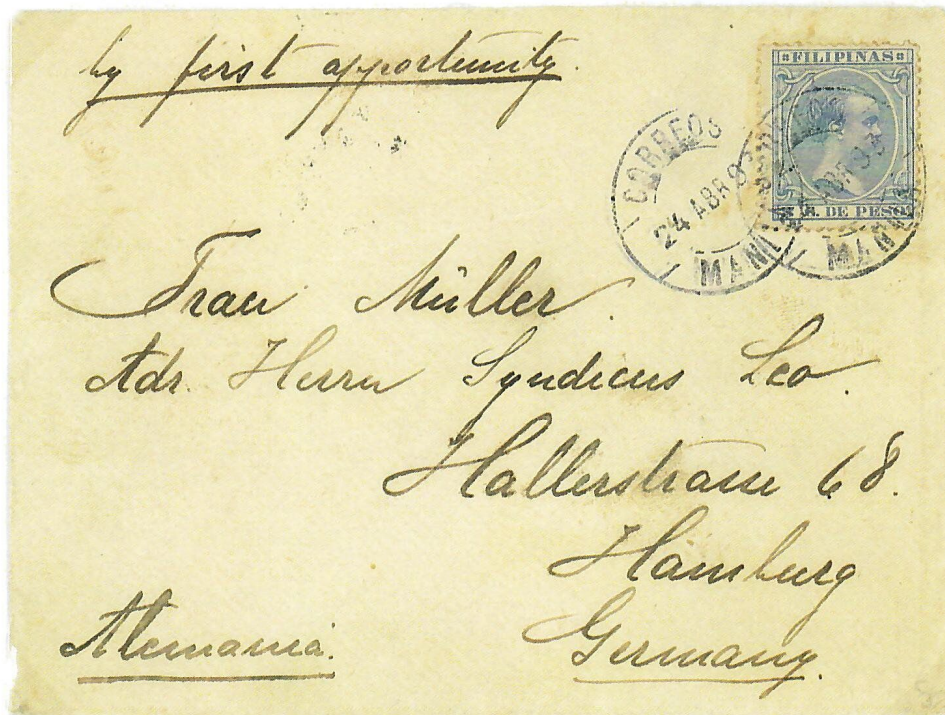 by first opportunity.
FILIPINAS
DE PESO
CORREOS
24 ABR 93
MANILA
MANILA
Frau Müller
Adr. Herrn Syndicus Leo.
Hallerstrasse 68.
Hamburg
Alemania.
Germany.